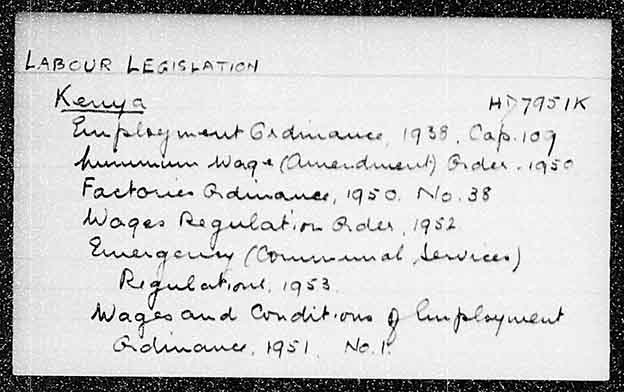 LABOUR LEGISLATION
Kenya HD7951K
Employment Ordinance, 1938. Cap. 109
Minimum Wage (Amendment) Order. 1950
Factories Ordinance, 1950. No. 38
Wages Regulation Order, 1952
Emergency (Communal Services)
Regulations, 1953.
Wages and Conditions of Employment
Ordinance, 1951. No. 1.